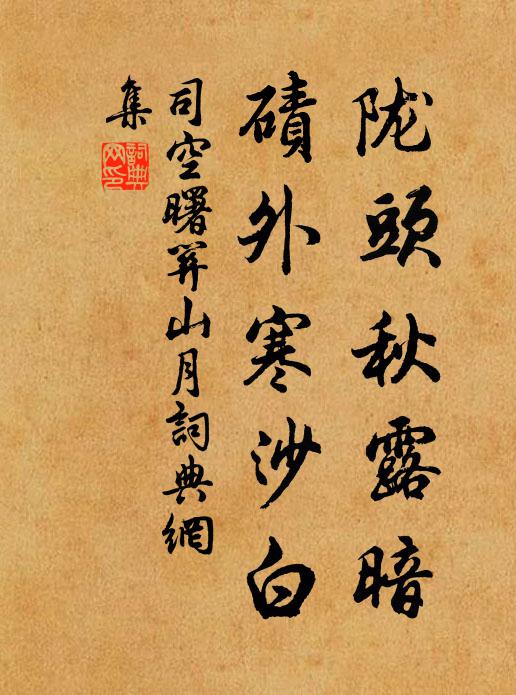 陇頭秋露暗
磧外寒沙白
司空曙關山月詞典網
集
詞典網印